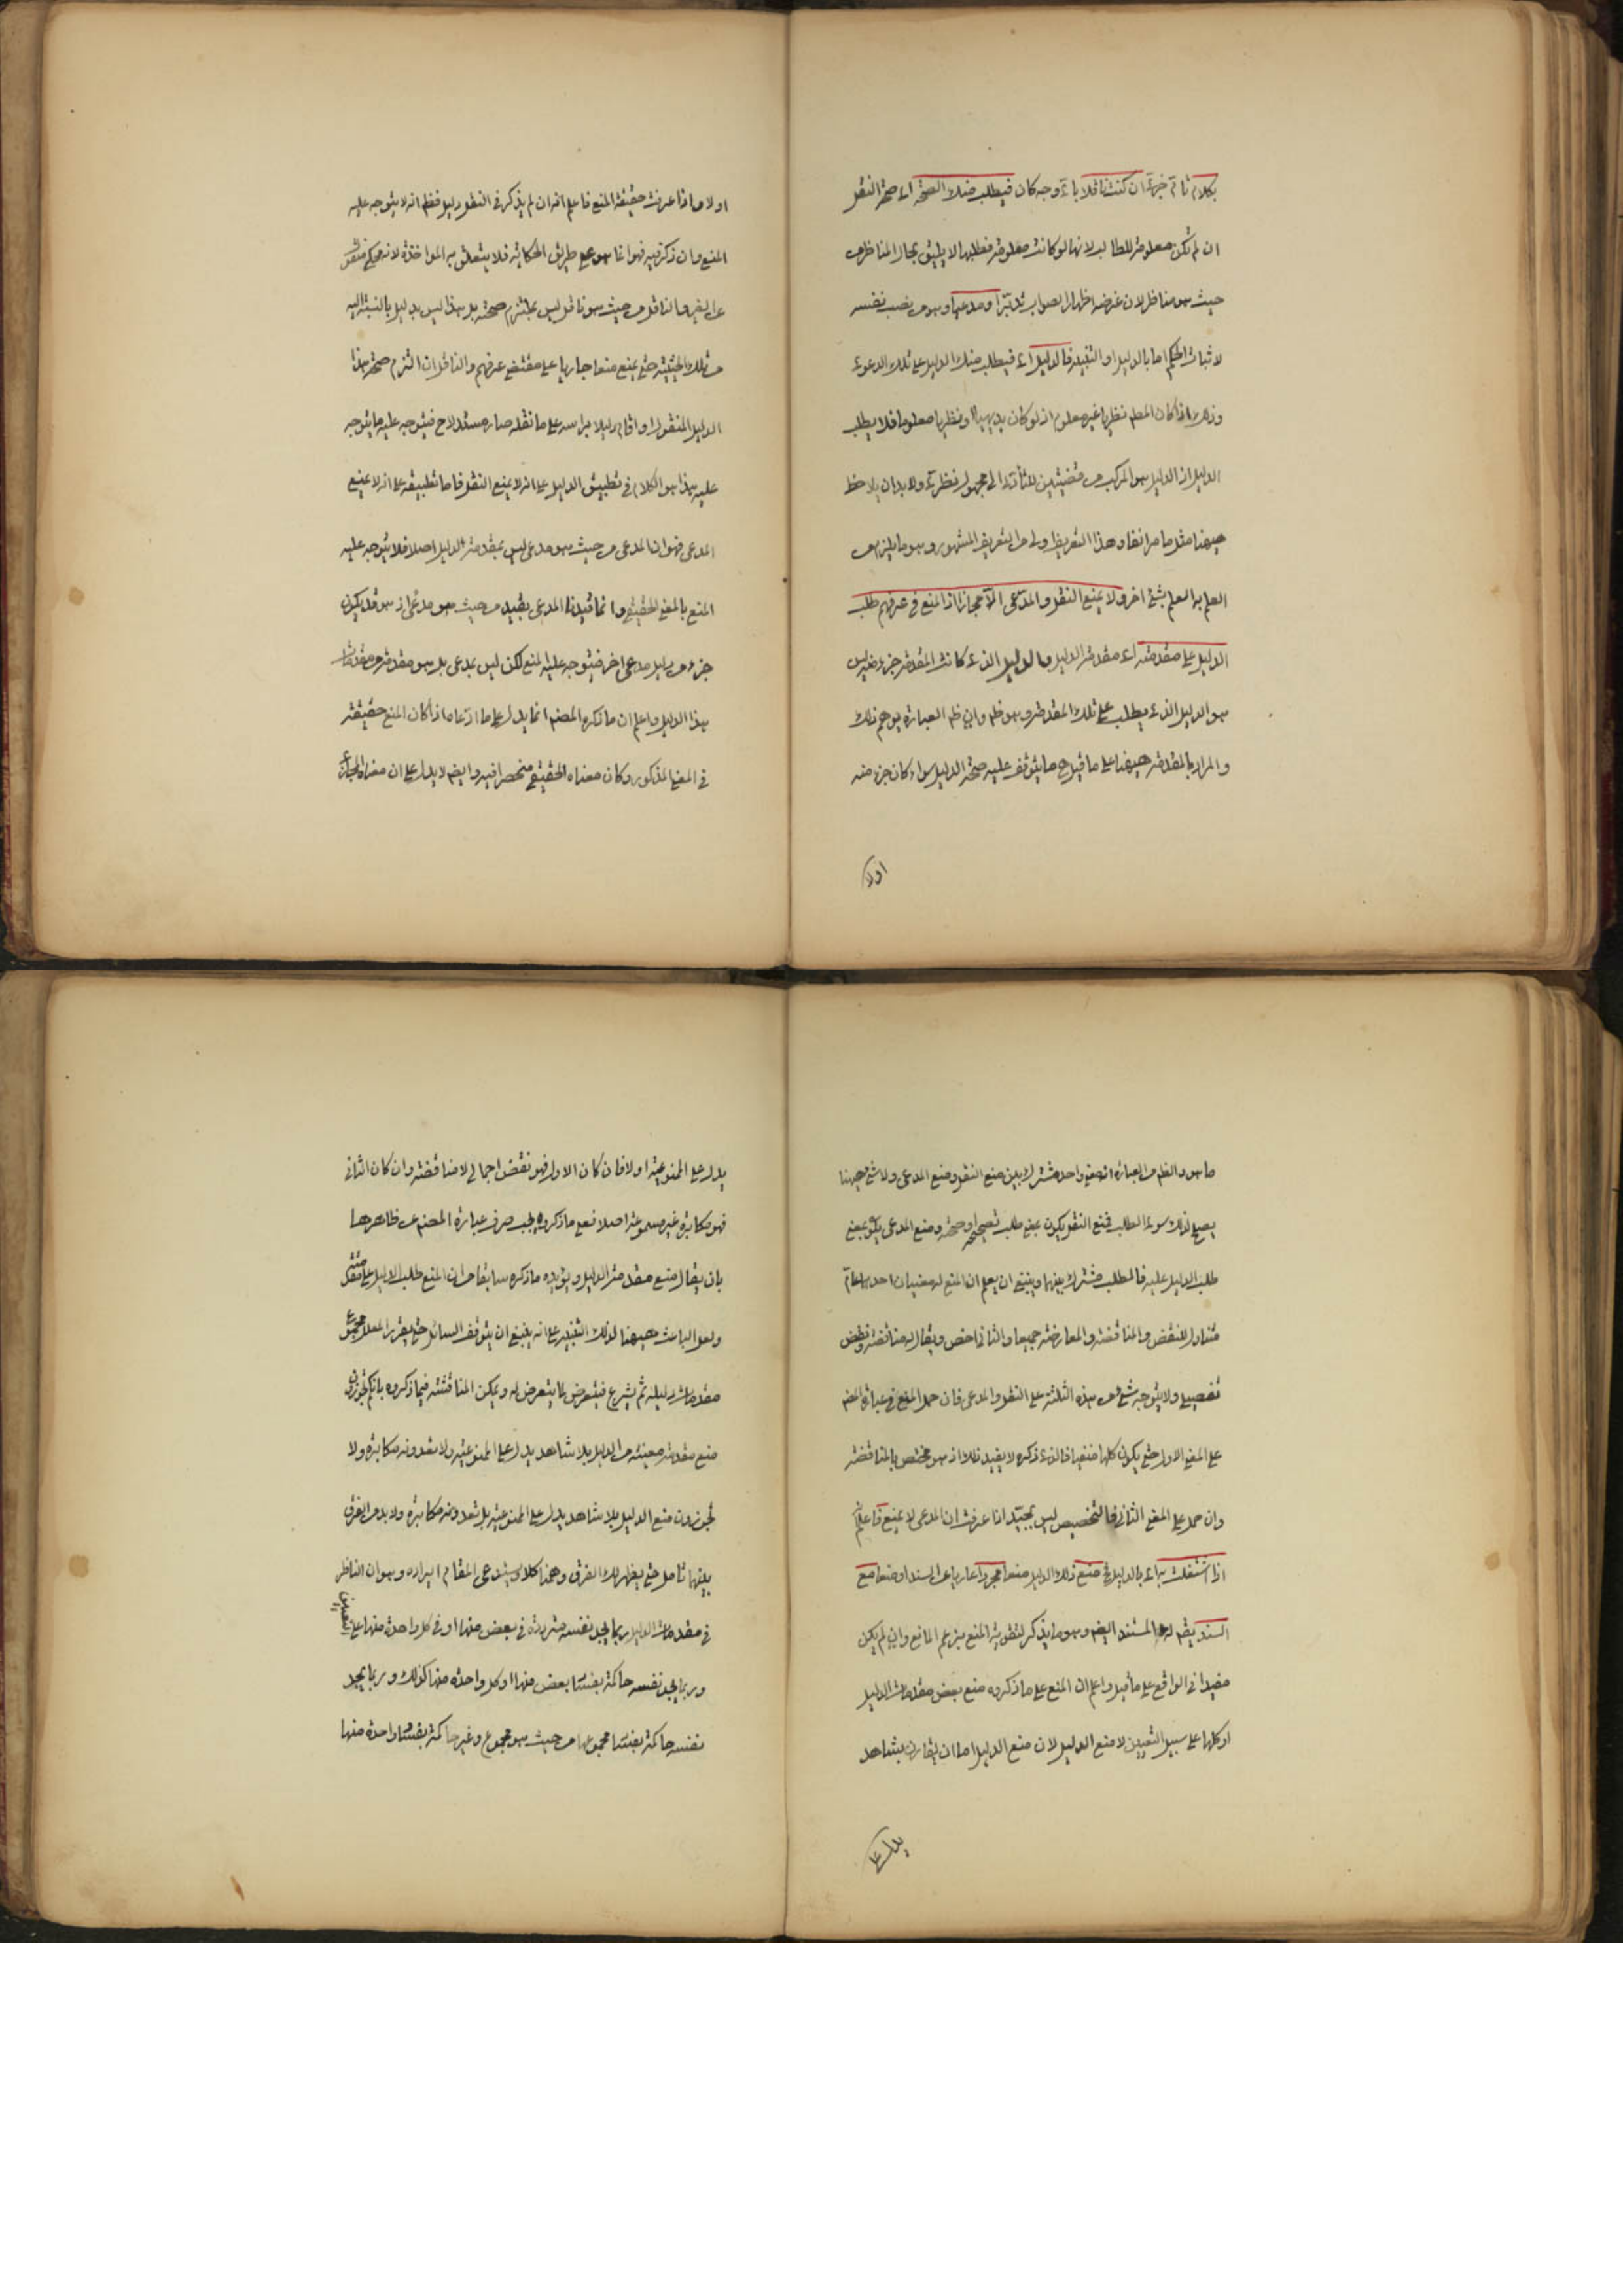 بكلام تام خبرى ان كنت ناقلا باى وجه كان فيطلب منك الصحة اى صحة النقل
ان لم تكن معلومة للطالب لانها لو كانت معلومة فطلبها لا يليق بحال المناظر من
حيث هو مناظر لان غرضه اظهار الصواب تدبر او مدعيا وهو من نصب نفسه
لاثبات الحكم اما بالدليل او التنبيه فالدليل اى فيطلب منك الدليل على تلك الدعوى
وذلك اذا كان المط نظريا غير معلوم اذ لو كان بديهيا او نظريا معلوما فلا يطلب
الدليل اذ الدليل هو المركب من قضيتين للتأدى الى مجهول نظرى ولا بد ان يلاحظ
ههنا مثل ما مر انفا وهذا التعريف اولى من التعريف المشهور وهو ما يلزم من
العلم به العلم بشئ اخر ولا يمنع النقل والمدعى الا مجازا اذ المنع فى عرفهم طلب
الدليل على مقدمته اى مقدمة الدليل والدليل الذى كانت المقدمة جزء منه ليس
هو الدليل الذى يطلب على تلك المقدمة وهو ظ وان ظ العبارة يوهم ذلك
والمراد بالمقدمة ههنا على ما قيل ح ما يتوقف عليه صحة الدليل سواء كان جزء منه
اولا
اولا واذا عرفت حقيقة المنع فاعلم انه ان لم يذكر فى النقل دليل فظ انه لا يتوجه عليه
المنع وان ذكر فيه فهو انما هو على طريق الحكاية فلا يتعلق به المواخذة لانه محكى منقول
عن الغير والناقل من حيث هو ناقل ليس بملتزم صحته بل هذا ليس بدليل بالنسبة اليه
من تلك الحيثية حتى يمنع منعا جاريا على مقتضى عرفهم والناقل ان التزم صحة هذا
الدليل المنقول او اقام دليلا براسه على ما نقله صار مستدلا ح فيتوجه عليه ما يتوجه
عليه هذا هو الكلام فى تطبيق الدليل على انه لا يمنع النقل فاما تطبيقه على انه لا يمنع
المدعى فهو ان المدعى من حيث هو مدعى ليس بمقدمة الدليل اصلا فلا يتوجه عليه
المنع بالمعنى الحقيقى وانما قيدنا المدعى بقيد من حيث هو مدعى اذ هو قد يكون
جزء من دليل مدعى اخر فيتوجه عليه المنع لكن ليس بمدعى بل هو مقدمة من مقدمات
هذا الدليل واعلم ان ما ذكره المصنف انما يدل على ما ادعاه اذا كان المنع حقيقة
فى المعنى المذكور وكان معناه الحقيقى منحصرا فيه وايضا لا يدل على ان معناه المجازى
ما هو والظ من العبارة انه معنى واحد مشترك بين منع النقل ومنع المدعى ولا شئ ههنا
يصلح لذلك سوى الطلب فمنع النقل يكون بمعنى طلب تصحيحه او صحته ومنع المدعى يكون بمعنى
طلب الدليل عليه فالطلب مشترك بينهما وينبغى ان يعلم ان المنع له معنيان احدهما عام
متناول للنقض والمناقضة والمعارضة جميعا والثانى اخص ويقال له مناقضة ونقض
تفصيلى ولا يتوجه شئ من هذه الثلثة على النقل والمدعى فان حمل المنع فى عبارة المصنف
على المعنى الاول حتى يكون كلها منفيا فالذى ذكره لا يفيد ذلك اذ هو مختص بالمناقضة
وان حمل على المعنى الثانى فالتخصيص ليس بجيد اذا عرفت ان المدعى لا يمنع فاعلم انه
اذا اشتغلت به اى بالدليل فى منع ذلك الدليل منعا مجردا عاريا عن السند او منعا مع
السند يقال له المستند ايضا وهو ما يذكر لتقوية المنع بزعم المانع وان لم يكن
مفيدا فى الواقع على ما قيل واعلم ان المنع على ما ذكروه منع بعض مقدمات الدليل
او كلها على سبيل التعيين لا منع الدليل لان منع الدليل اما ان يقارن بشاهد
يدل على
يدل على الممنوعية اولا فان كان الاول فهو نقض اجمالى لا مناقضة وان كان الثانى
فهو مكابرة غير مسموعة اصلا فعلى ما ذكروه يجب صرف عبارة المصنف عن ظاهرها
بان يقال منع مقدمة الدليل ويؤيده ما ذكره سابقا من ان المنع طلب الدليل على مقدمته
ولعل الباعث ههنا لذلك التغيير على انه ينبغى ان يتوقف السائل حتى يقرر المعلل مجموع
مقدمات دليله ثم يشرع فيتعرض لما يتعرض له ويمكن المناقشة فيما ذكروه بانكم تجوزون
منع مقدمة معينة من الدليل بلا شاهد يدل على الممنوعية ولا تعدونه مكابرة ولا
تجوزون منع الدليل بلا شاهد يدل على الممنوعية بل تعدونه مكابرة ولا بد من الفرق
بينهما تامل حتى يظهر لك الفرق وههنا كلام يستدعى المقام ايراده وهو ان الناظر
فى مقدمات الدليل ربما يجد نفسه مترددة فى بعض منها او فى كل واحدة منها على التعيين
وربما يجد نفسه حاكمة بفساد بعض منها او كل واحدة منها كذلك وربما يجد
نفسه حاكمة بفساد مجموعها من حيث هو مجموع وغير حاكمة بفساد واحدة منها